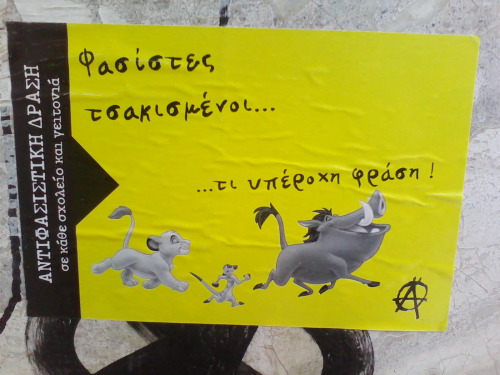 ΑΝΤΙΦΑΣΙΣΤΙΚΗ ΔΡΑΣΗ
σε κάθε σχολείο και γειτονιά
Φασίστες
τσακισμένοι...
...τι υπέροχη φράση!